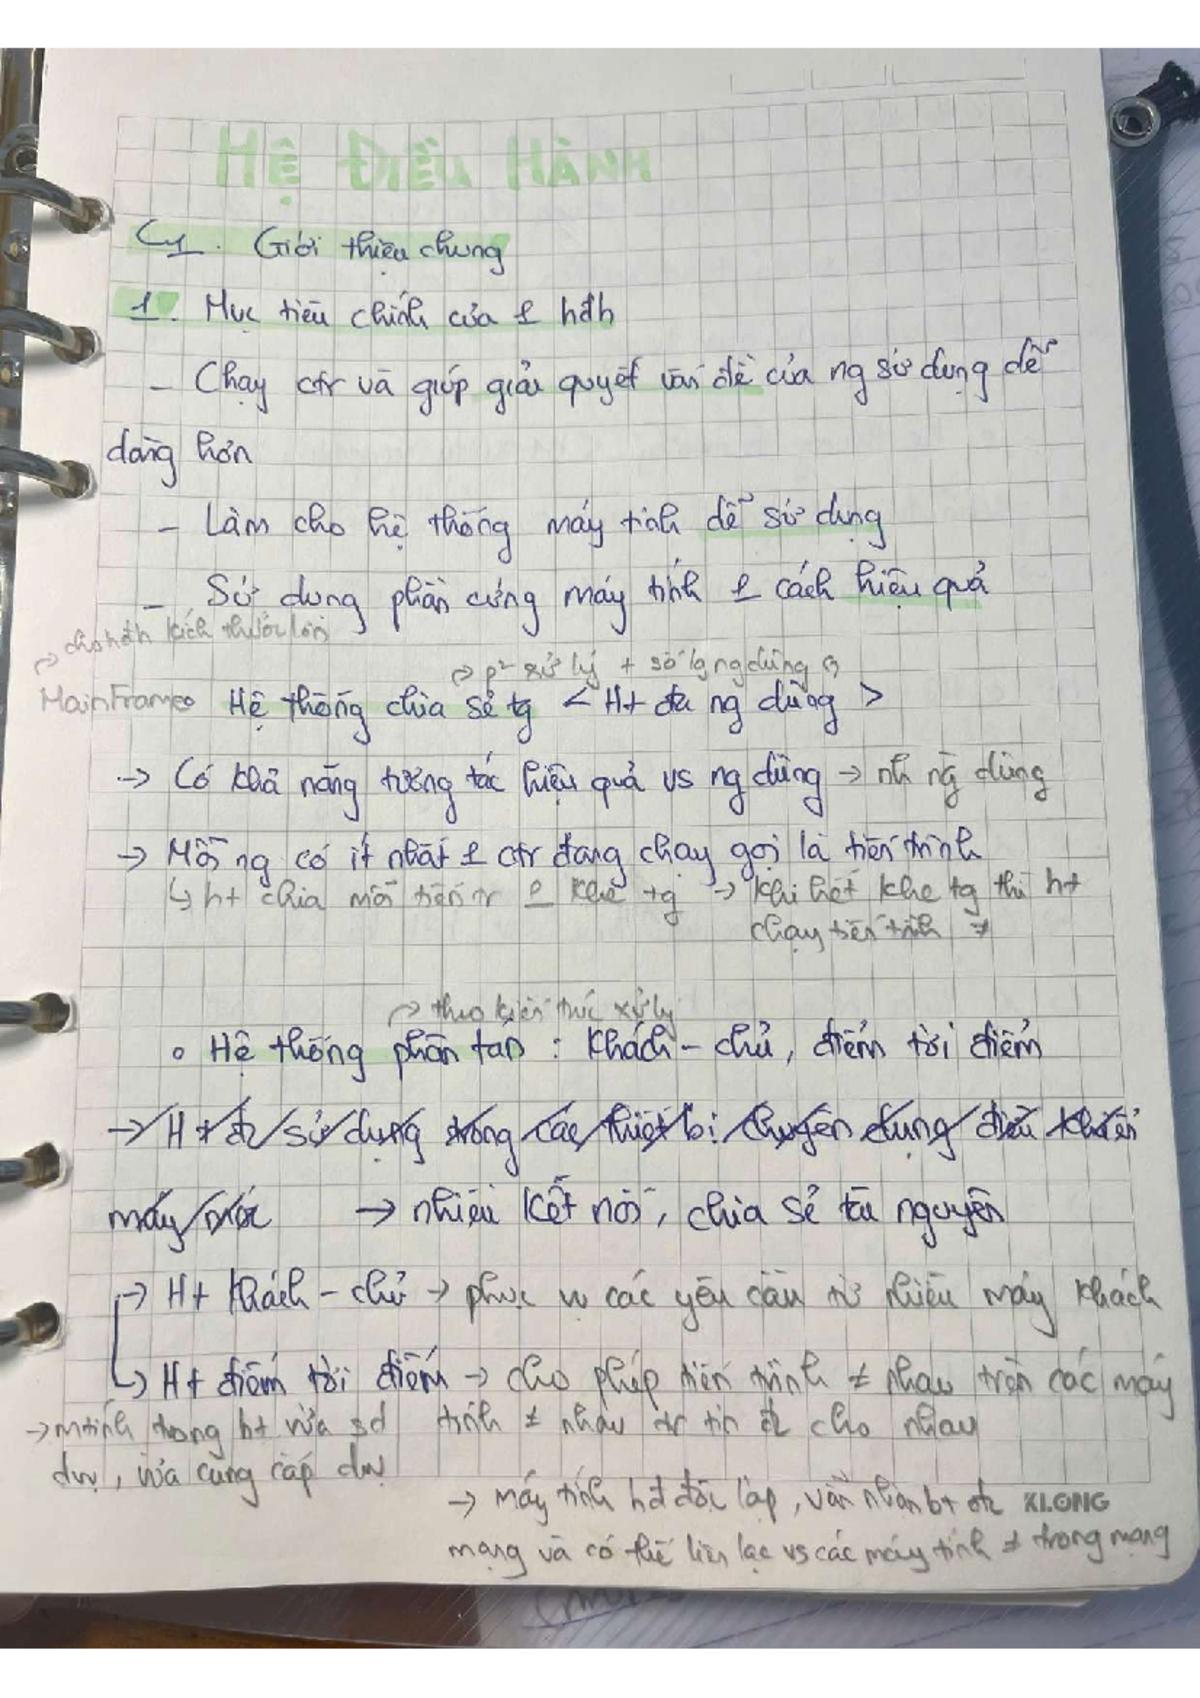 HỆ ĐIỀU HÀNH
C1. Giới thiệu chung
1. Mục tiêu chính của 1 hđh
- Chạy ctr và giúp giải quyết vấn đề của ng sử dụng dễ
dàng hơn
- Làm cho hệ thống máy tính dễ sử dụng
- Sử dụng phần cứng máy tính 1 cách hiệu quả
kích thước lớn
p² xử lý + số lg ng dùng
MainFrame Hệ thống chia sẻ tg < Ht đa ng dùng >
→ Có khả năng tương tác hiệu quả vs ng dùng → nh ng dùng
→ Mỗi ng có ít nhất 1 ctr đang chạy gọi là tiến trình
↳ ht chia mỗi tiến tr 1 khe tg → khi hết khe tg thì ht
chạy tiến trình ≠
theo kiến trúc xử lý
Hệ thống phân tán : Khách - chủ, điểm tới điểm
→ Ht đc sử dụng trong các thiết bị chuyên dụng điều khiển
máy móc → nhiều kết nối, chia sẻ tài nguyên
→ Ht Khách - chủ → phục vụ các yêu cầu từ nhiều máy khách
↳ Ht điểm tới điểm → cho phép tiến trình ≠ nhau trên các máy
tính ≠ nhau tr tin đc cho nhau
→ mtính trong ht vừa sd
dvụ, vừa cung cấp dvụ
→ máy tính hđ độc lập, vẫn nhận bt đc
KLONG
mạng và có thể liên lạc vs các máy tính ≠ trong mạng